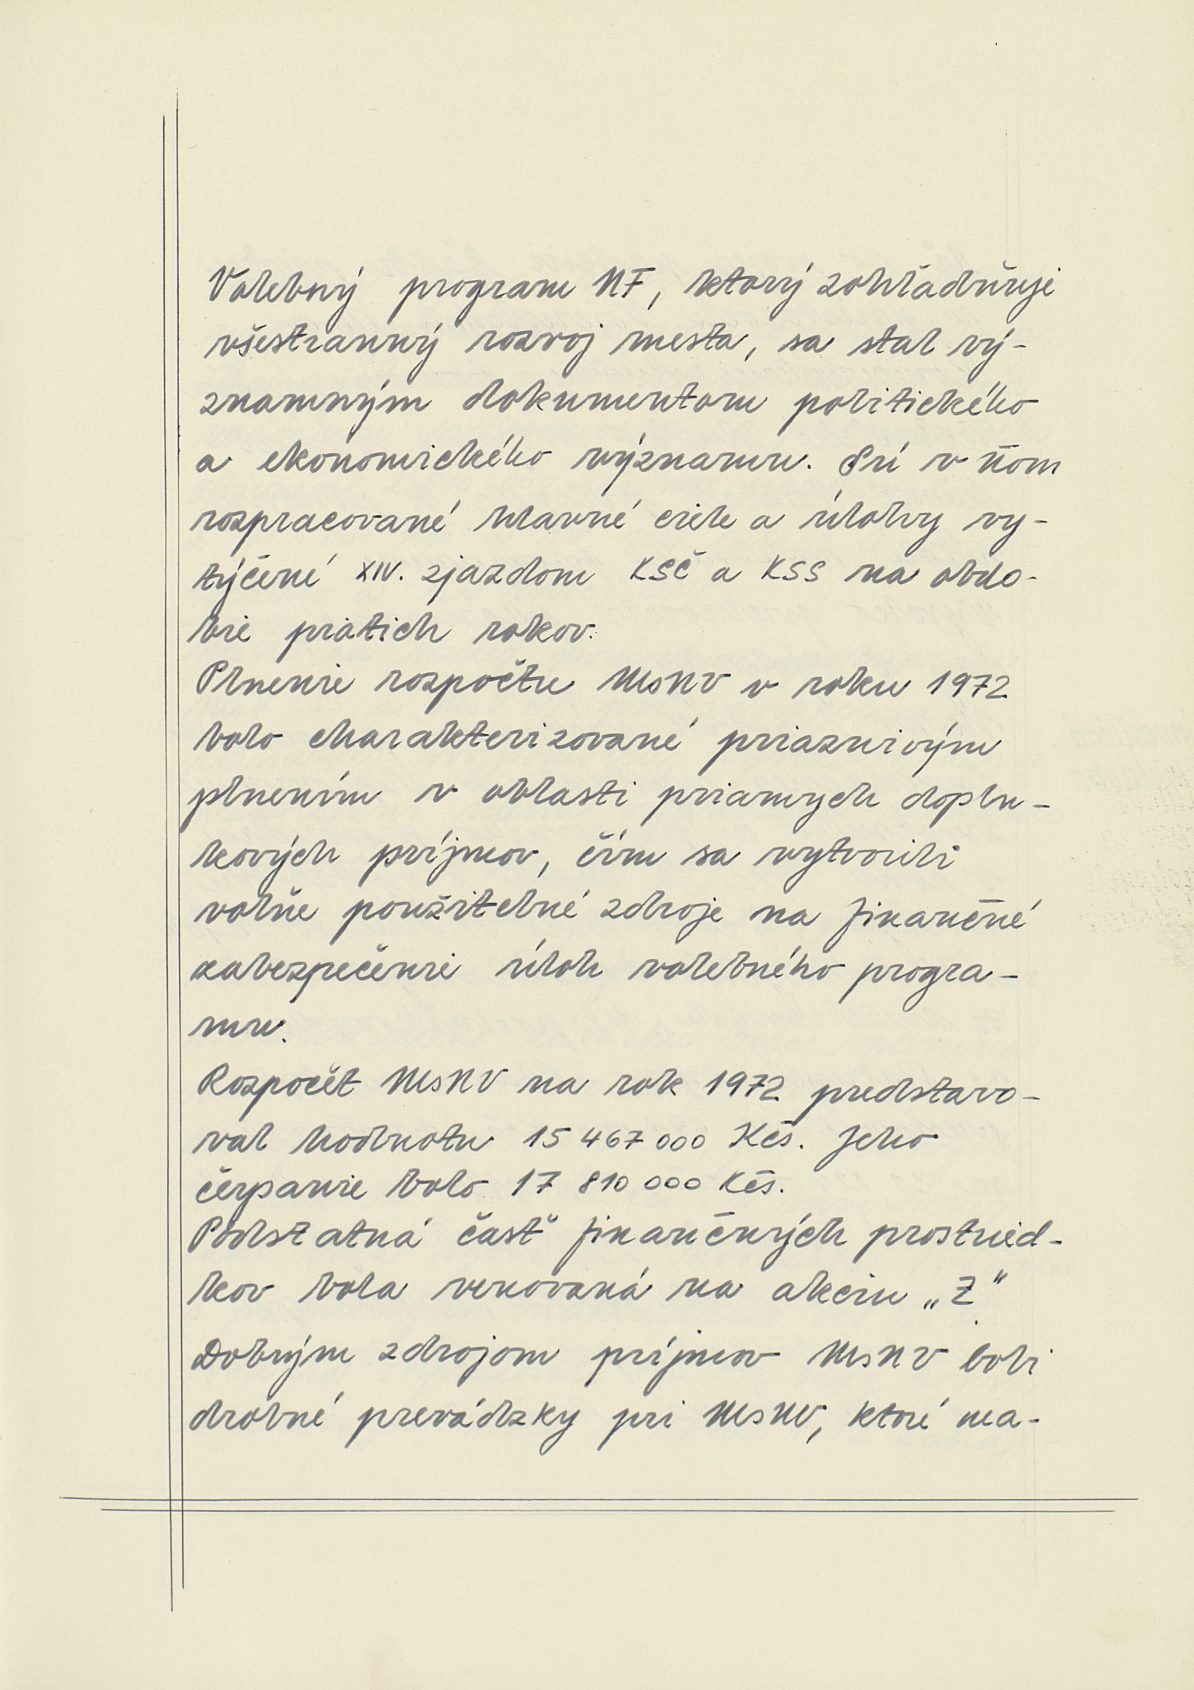 Volebný program NF, ktorý zohľadňuje
všestranný rozvoj mesta, sa stal vý-
znamným dokumentom politického
a ekonomického významu. Sú v ňom
rozpracované hlavné ciele a úlohy vy-
týčené XIV. zjazdom KSČ a KSS na obdo-
bie piatich rokov.
Plnenie rozpočtu MsNV v roku 1972
bolo charakterizované priaznivým
plnením v oblasti priamych dopln-
kových príjmov, čím sa vytvorili
voľne použiteľné zdroje na finančné
zabezpečenie úloh volebného progra-
mu.
Rozpočet MsNV na rok 1972 predstavo-
val hodnotu 15 467 000 Kčs. Jeho
čerpanie bolo 17 810 000 Kčs.
Podstatná časť finančných prostried-
kov bola venovaná na akciu „Z"
Dobrým zdrojom príjmov MsNV boli
drobné prevádzky pri MsNV, ktoré ma-